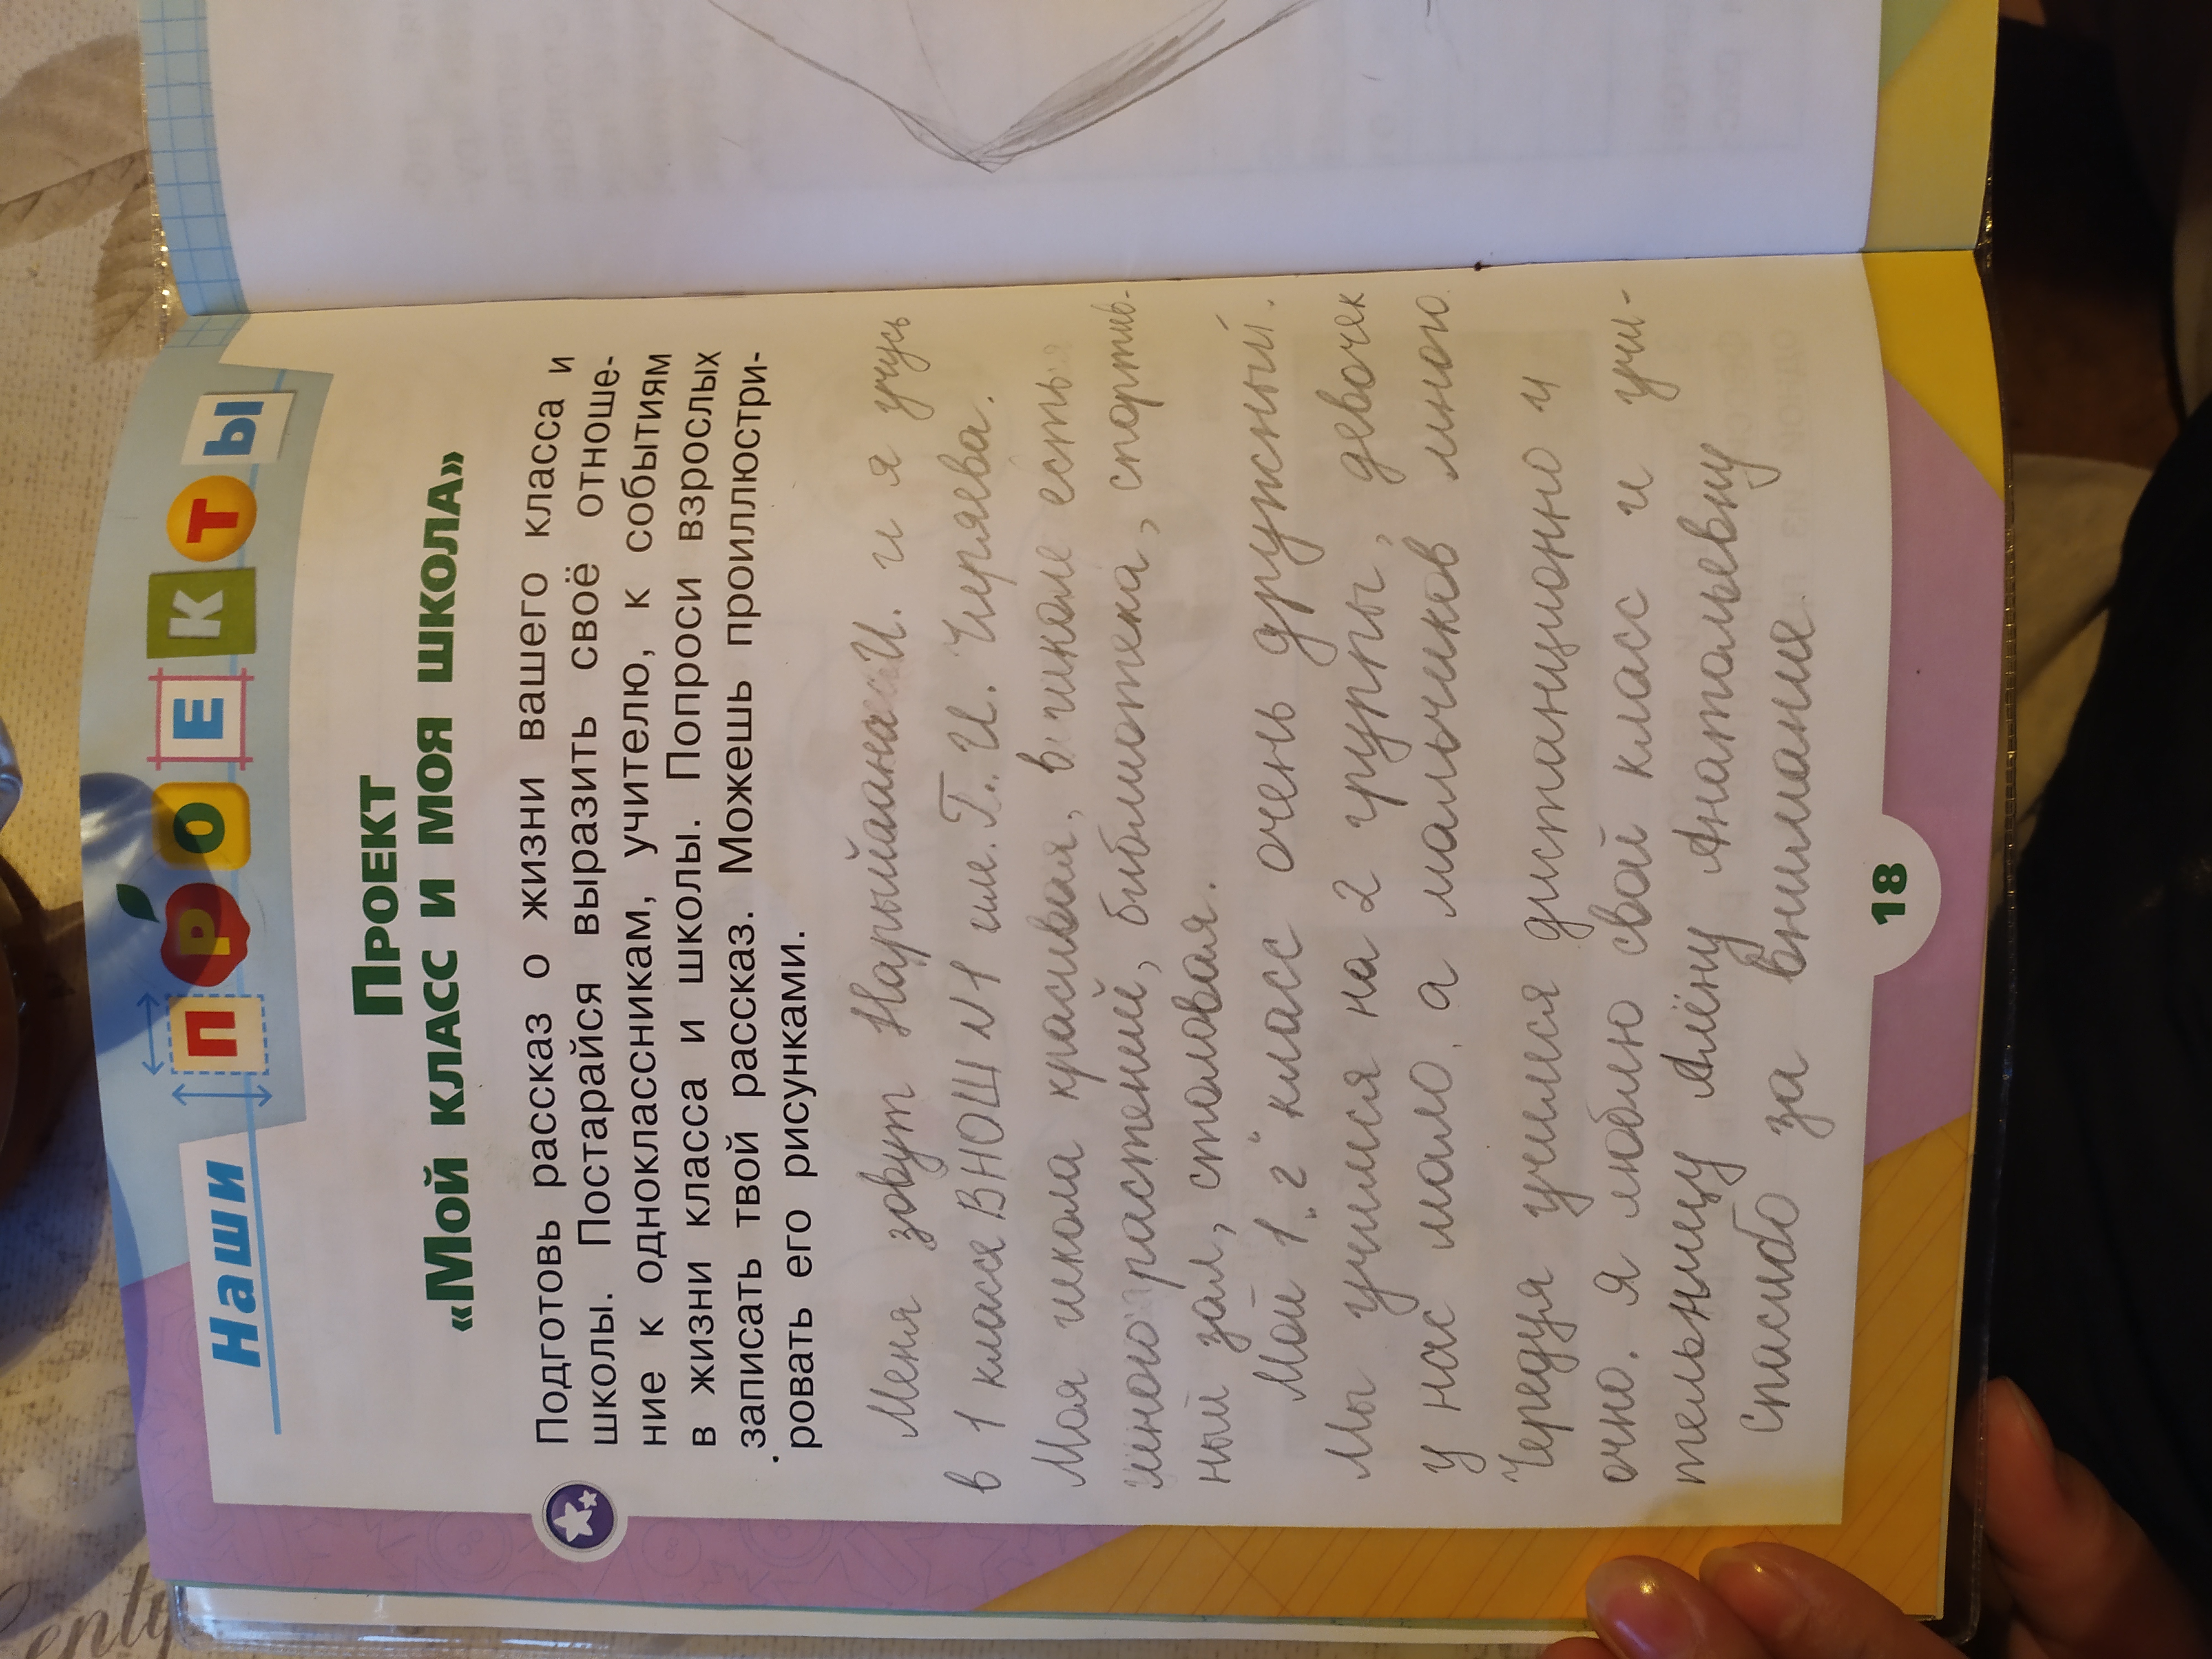 Наши ПРОЕКТЫ
Проект
«Мой класс и моя школа»
Подготовь рассказ о жизни вашего класса и
школы. Постарайся выразить своё отноше-
ние к одноклассникам, учителю, к событиям
в жизни класса и школы. Попроси взрослых
записать твой рассказ. Можешь проиллюстри-
ровать его рисунками.
Меня зовут Нарыйаана И. и я учусь
в 1 классе ВНОШ №1 им. Г. И. Чиряева.
Моя школа красивая, в школе есть
много растений, библиотека, спортив-
ный зал, столовая.
Мой 1 „г“ класс очень дружный.
Мы учимся на 2 группы, девочек
у нас мало, а мальчиков много.
Чередуя учимся дистанционно и
очно. Я люблю свой класс и учи-
тельницу Алёну Анатольевну
спасибо за внимания.
18